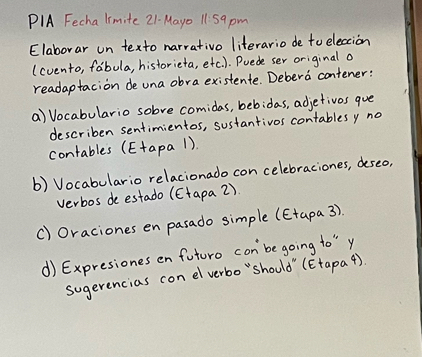 PIA Fecha límite 21-Mayo 11:59pm
Elaborar un texto narrativo literario de tu elección
(cuento, fábula, historieta, etc.). Puede ser original o
readaptación de una obra existente. Deberá contener:
a) Vocabulario sobre comidas, bebidas, adjetivos que
describen sentimientos, sustantivos contables y no
contables (Etapa 1).
b) Vocabulario relacionado con celebraciones, deseo,
verbos de estado (Etapa 2).
c) Oraciones en pasado simple (Etapa 3).
d) Expresiones en futuro con "be going to" y
sugerencias con el verbo "should" (Etapa 4).